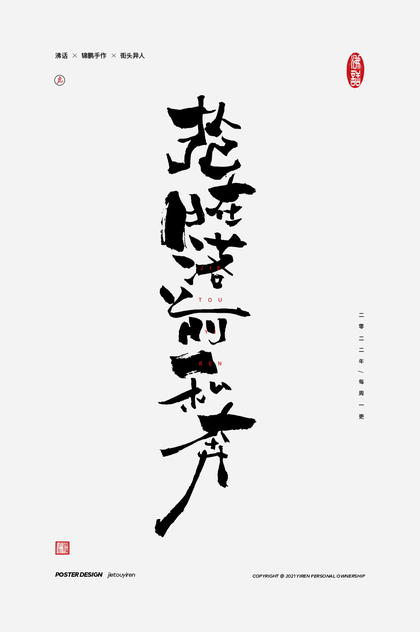 沸话 × 锦鹏手作 × 街头异人
抢在日落前私奔
JIE
TOU
REN
二零二二年/每周一更
POSTER DESIGN jietouyiren
COPYRIGHT @ 2021 YIREN PERSONAL OWNERSHIP